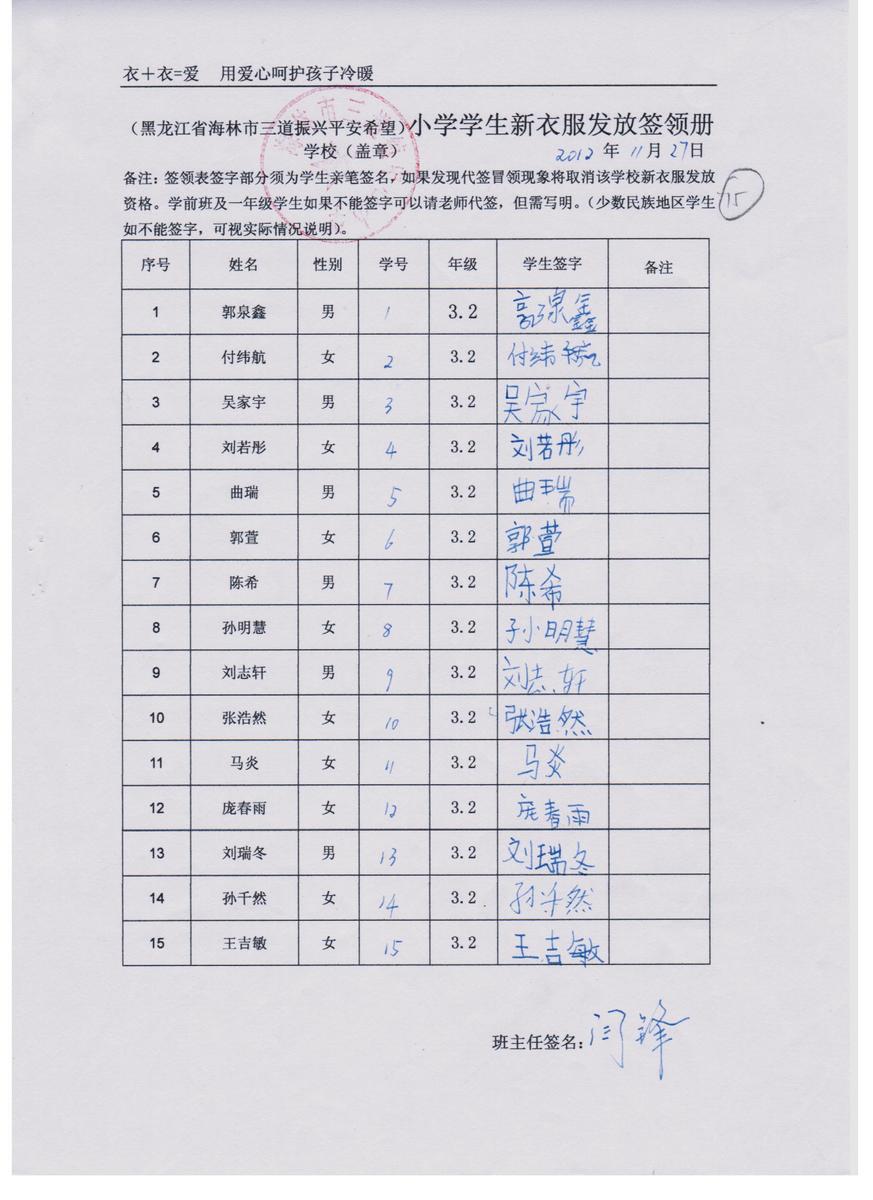 衣+衣=爱 用爱心呵护孩子冷暖
（黑龙江省海林市三道振兴平安希望）小学学生新衣服发放签领册
学校（盖章） 2012 年 11 月 27 日
备注：签领表签字部分须为学生亲笔签名，如果发现代签冒领现象将取消该学校新衣服发放
资格。学前班及一年级学生如果不能签字可以请老师代签，但需写明。（少数民族地区学生
如不能签字，可视实际情况说明）。
15
序号 姓名 性别 学号 年级 学生签字 备注
1 郭泉鑫 男 1 3.2 郭泉鑫
2 付纬航 女 2 3.2 付纬航
3 吴家宇 男 3 3.2 吴家宇
4 刘若彤 女 4 3.2 刘若彤
5 曲瑞 男 5 3.2 曲瑞
6 郭萱 女 6 3.2 郭萱
7 陈希 男 7 3.2 陈希
8 孙明慧 女 8 3.2 孙明慧
9 刘志轩 男 9 3.2 刘志轩
10 张浩然 女 10 3.2 张浩然
11 马炎 女 11 3.2 马炎
12 庞春雨 女 12 3.2 庞春雨
13 刘瑞冬 男 13 3.2 刘瑞冬
14 孙千然 女 14 3.2 孙千然
15 王吉敏 女 15 3.2 王吉敏
班主任签名：闫锋